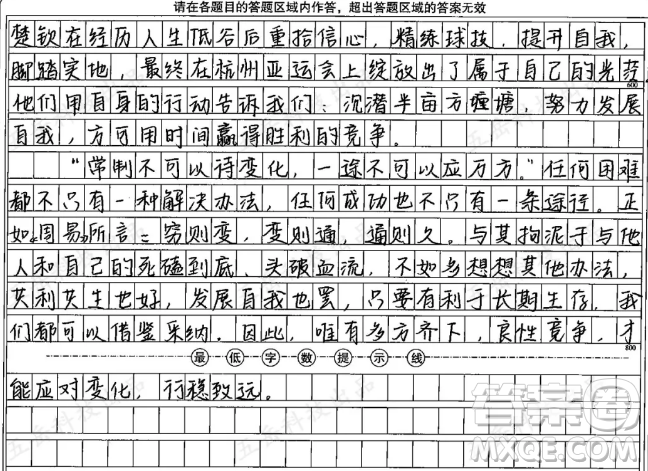 请在各题目的答题区域内作答，超出答题区域的答案无效
楚钦在经历人生低谷后重拾信心，精练球技，提升自我，
脚踏实地，最终在杭州亚运会上绽放出了属于自己的光芒。
600
他们用自身的行动告诉我们：沉潜半亩方塘，努力发展
自我，方可用时间赢得胜利的竞争。
“常制不可以待变化，一途不可以应万方。”任何困难
都不只有一种解决办法，任何成功也不只有一条途径。正
如《周易》所言：穷则变，变则通，通则久。与其拘泥于与他
人和自己的死磕到底、头破血流，不如多想想其他办法，
共利共生也好，发展自我也罢，只要有利于长期生存，我
们都可以借鉴采纳。因此，唯有多方齐下，良性竞争，才
800
最低字数提示线
能应对变化，行稳致远。
五岳科技出品
答案圈
MXQE.COM